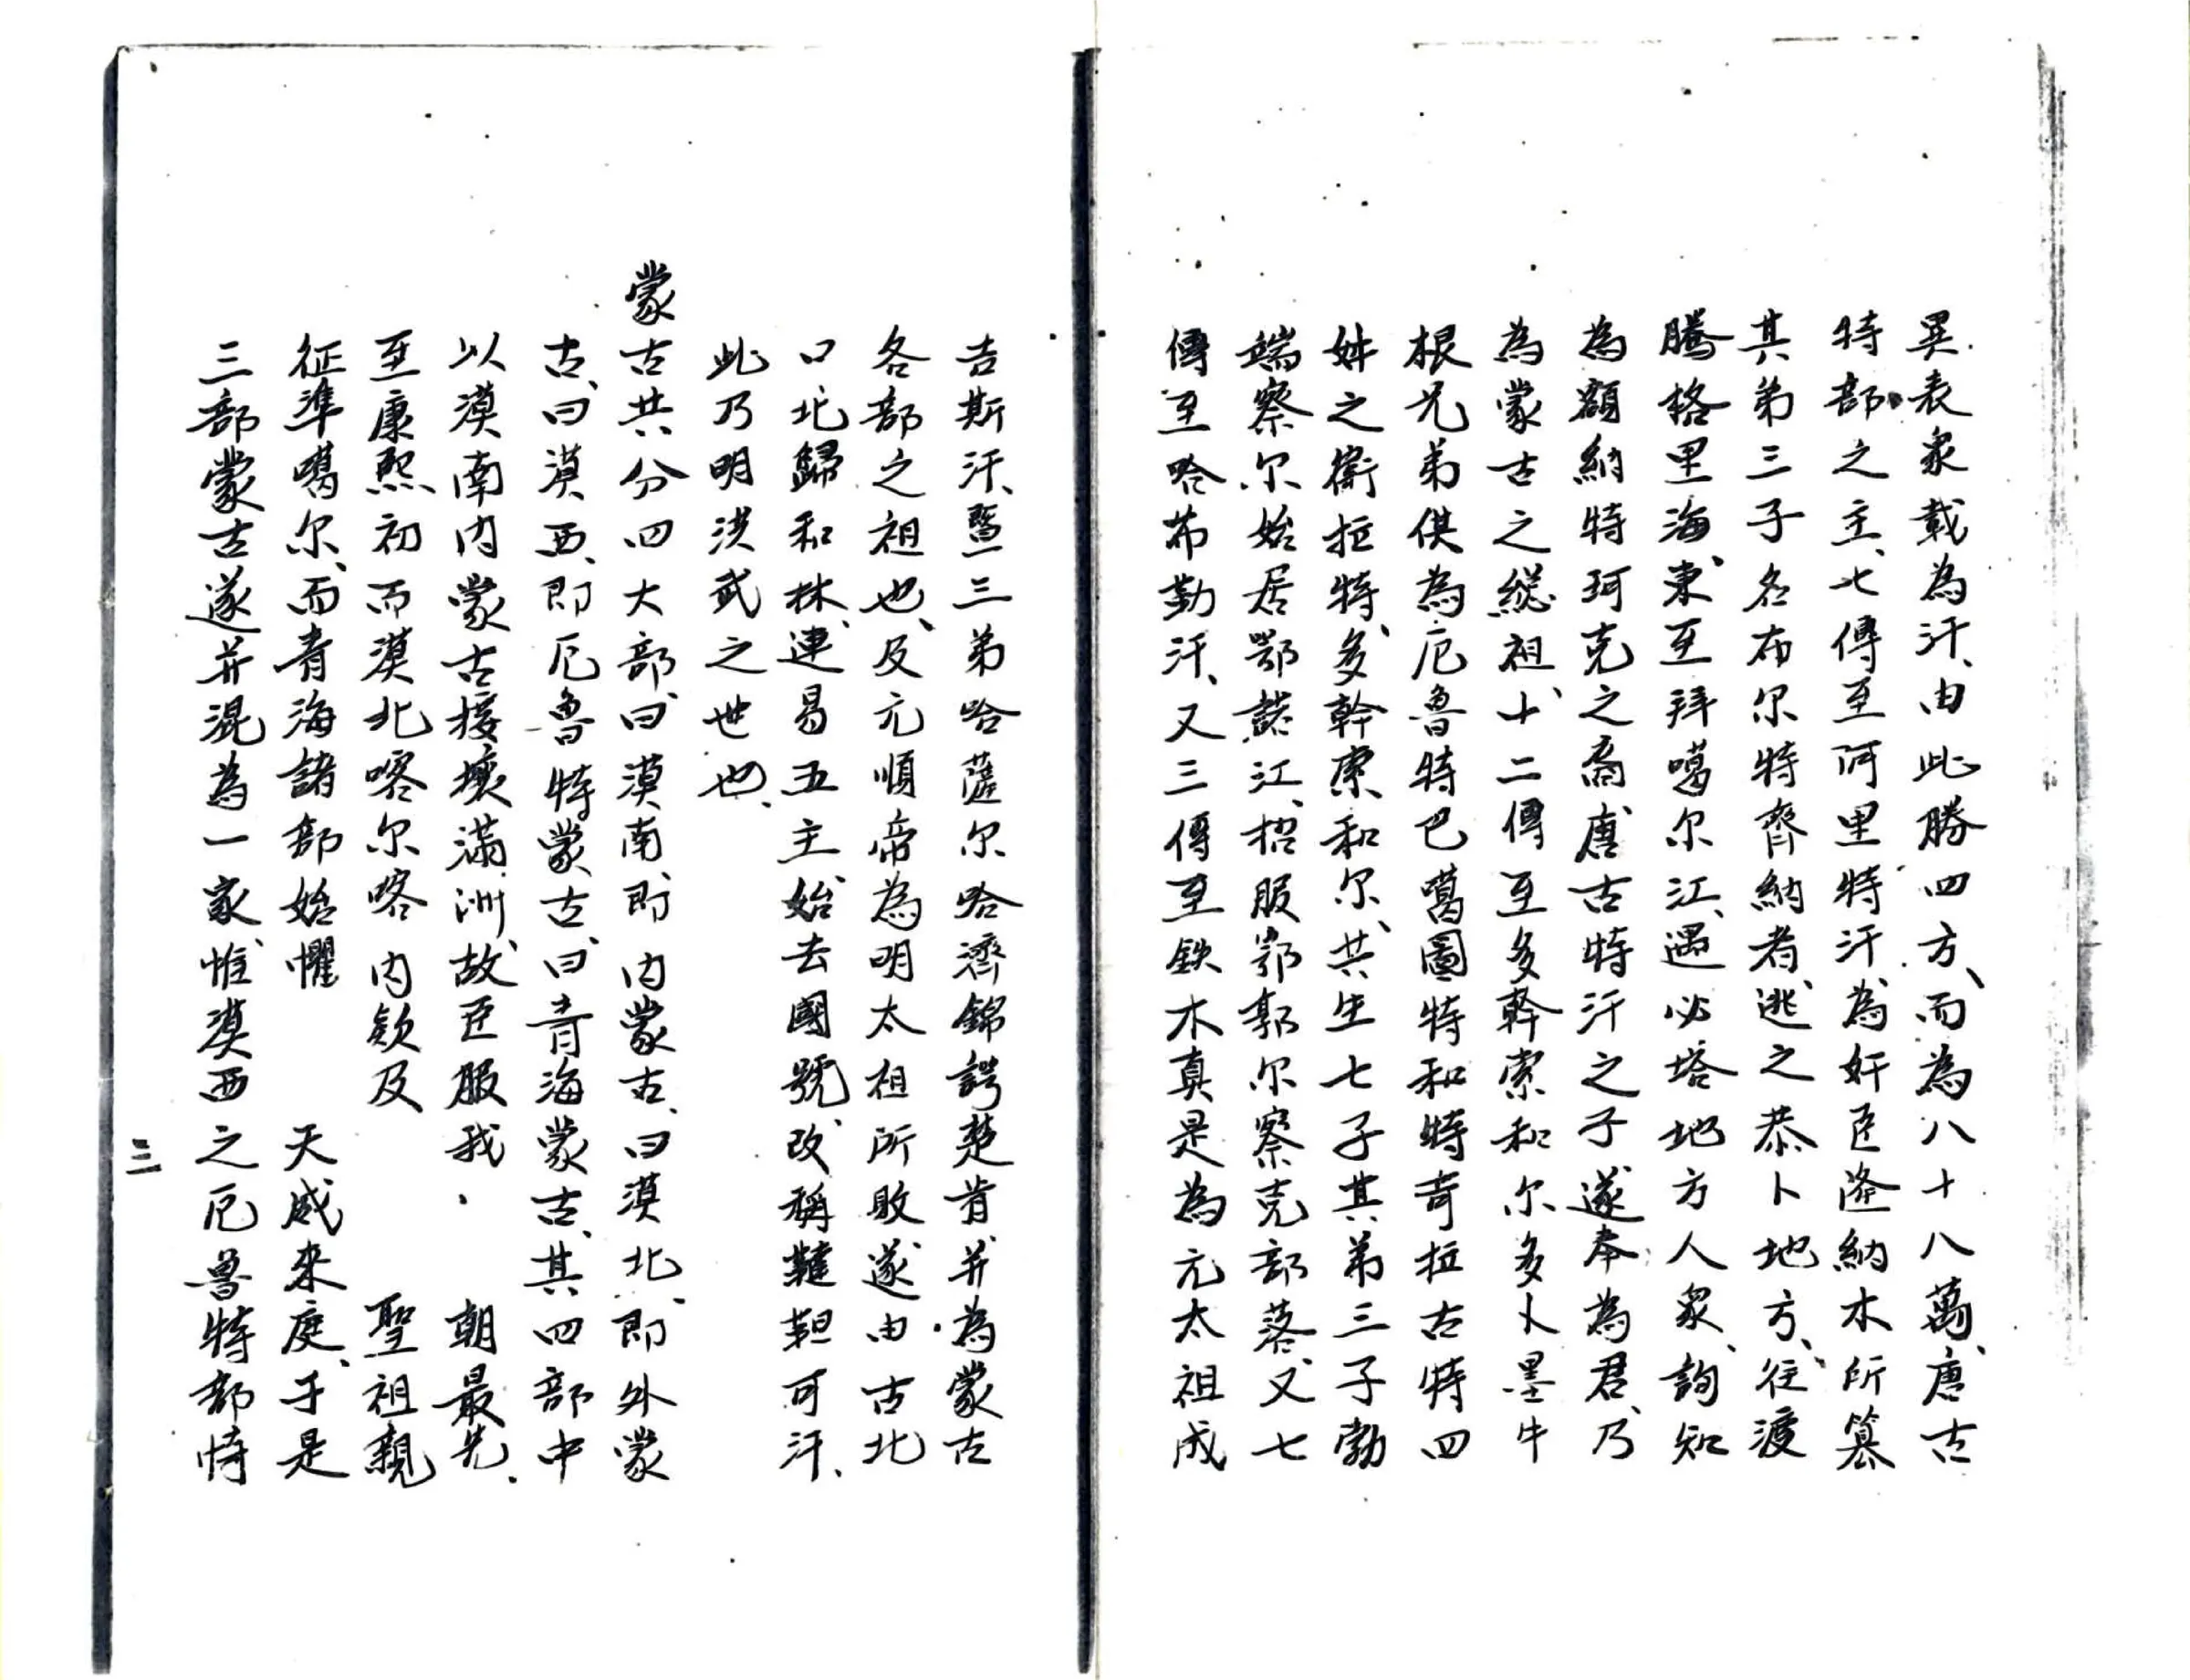 異表衆載為汗、由此勝四方、而為八十八萬、唐古
特部之主、七傳至阿里特汗、為奸臣隆納木所篡
其弟三子名布尔特齊納者、逃之恭卜地方、往渡
騰格里海、東至拜噶尔江、遇必塔地方人衆、詢知
為額納特珂克之裔、唐古特汗之子、遂奉為君、乃
為蒙古之総祖、十二傳至多幹索和尔多卜墨牛
根兄弟俱為厄魯特巴噶圖特和特奇拉古特四
姓之衛拉特、多幹索和尔、共生七子其弟三子勃
端察尔始居鄂諾江、招服鄂郭尔察克部落、又七
傳至哈布勤汗、又三傳至鉄木真是為元太祖成
吉斯汗、暨三弟哈薩尔哈濟錦諤楚肯、并為蒙古
各部之祖也、及元順帝為明太祖所敗、遂由古北
口北歸和林、連易五主、始去國號、改稱韃靼可汗、
此乃明洪武之世也、
蒙古共分四大部、曰漠南、即内蒙古、曰漠北、即外蒙
古、曰漠西、即厄魯特蒙古、曰青海蒙古、其四部中
以漠南内蒙古接壤滿洲、故臣服我 朝最先、
至康熙初而漠北喀尔喀内欸及 聖祖親
征準噶尔、而青海諸部始懼 天威來庭、于是
三部蒙古遂并混為一家、惟漠西之厄魯特部恃
三